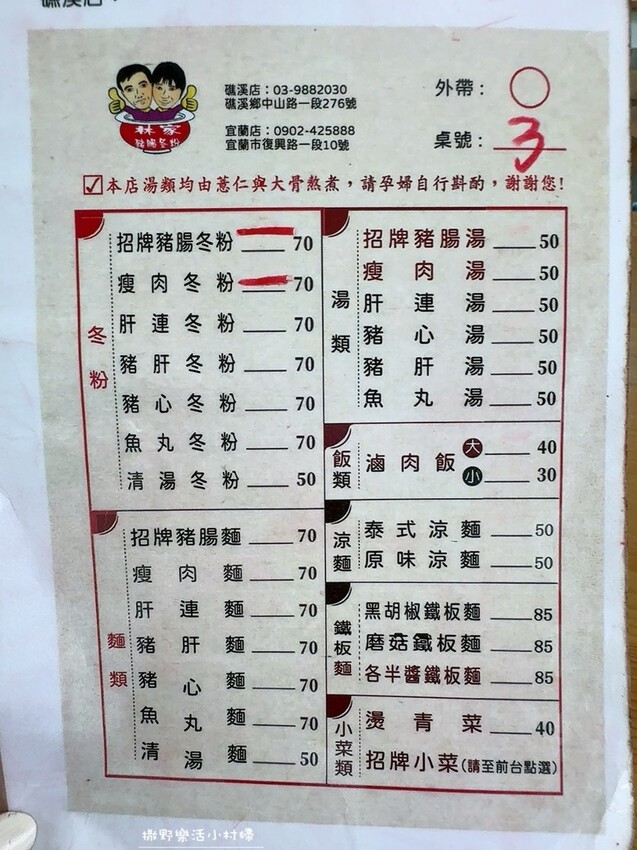 礁溪店：
林家
豬腸冬粉
礁溪店：03-9882030
礁溪鄉中山路一段276號
宜蘭店：0902-425888
宜蘭市復興路一段10號
外帶：
桌號： 3
本店湯類均由薏仁與大骨熬煮，請孕婦自行斟酌，謝謝您!
冬粉
招牌豬腸冬粉 70
瘦肉冬粉 70
肝連冬粉 70
豬肝冬粉 70
豬心冬粉 70
魚丸冬粉 70
清湯冬粉 50
麵類
招牌豬腸麵 70
瘦肉麵 70
肝連麵 70
豬肝麵 70
豬心麵 70
魚丸麵 70
清湯麵 50
湯類
招牌豬腸湯 50
瘦肉湯 50
肝連湯 50
豬心湯 50
豬肝湯 50
魚丸湯 50
飯類
滷肉飯 大 40
小 30
涼麵
泰式涼麵 50
原味涼麵 50
鐵板麵
黑胡椒鐵板麵 85
磨菇鐵板麵 85
各半醬鐵板麵 85
小菜類
燙青菜 40
招牌小菜(請至前台點選)
撒野樂活小村婦